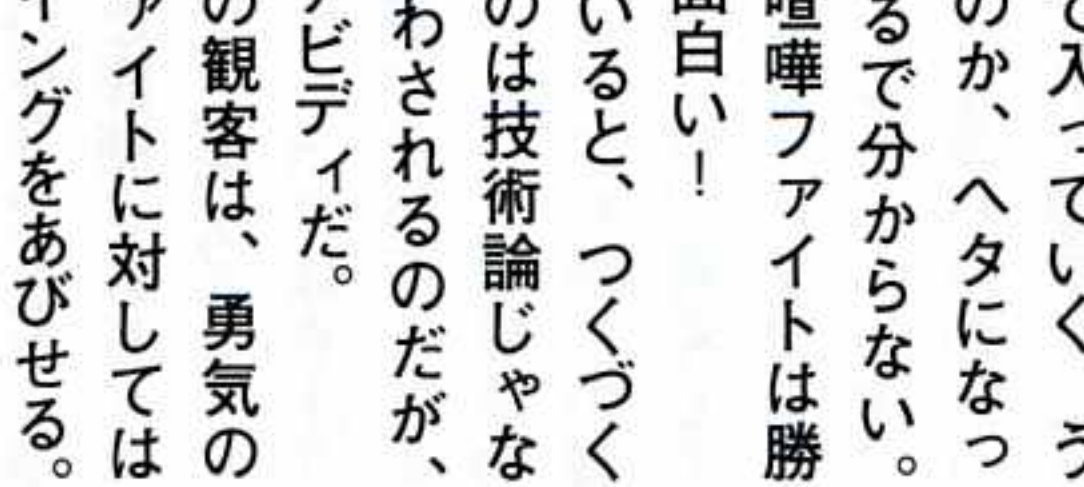 て入っていく。う
のか、ヘタになっ
るで分からない。
喧嘩ファイトは勝
面白い！
いると、つくづく
のは技術論じゃな
わされるのだが、
ビディだ。
の観客は、勇気の
ァイトに対しては
イングをあびせる。